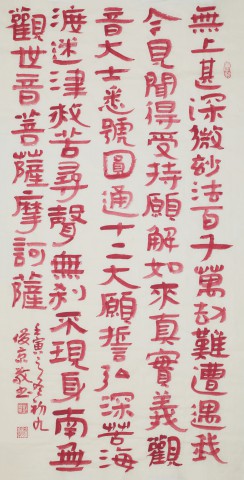 無上甚深微妙法百千萬劫難遭遇我
今見聞得受持願解如來真實義觀
音大士悉號圓通十二大願誓弘深苦海
渡迷津救苦尋聲無刹不現身南無
觀世音菩薩摩訶薩
壬寅初九
敬書